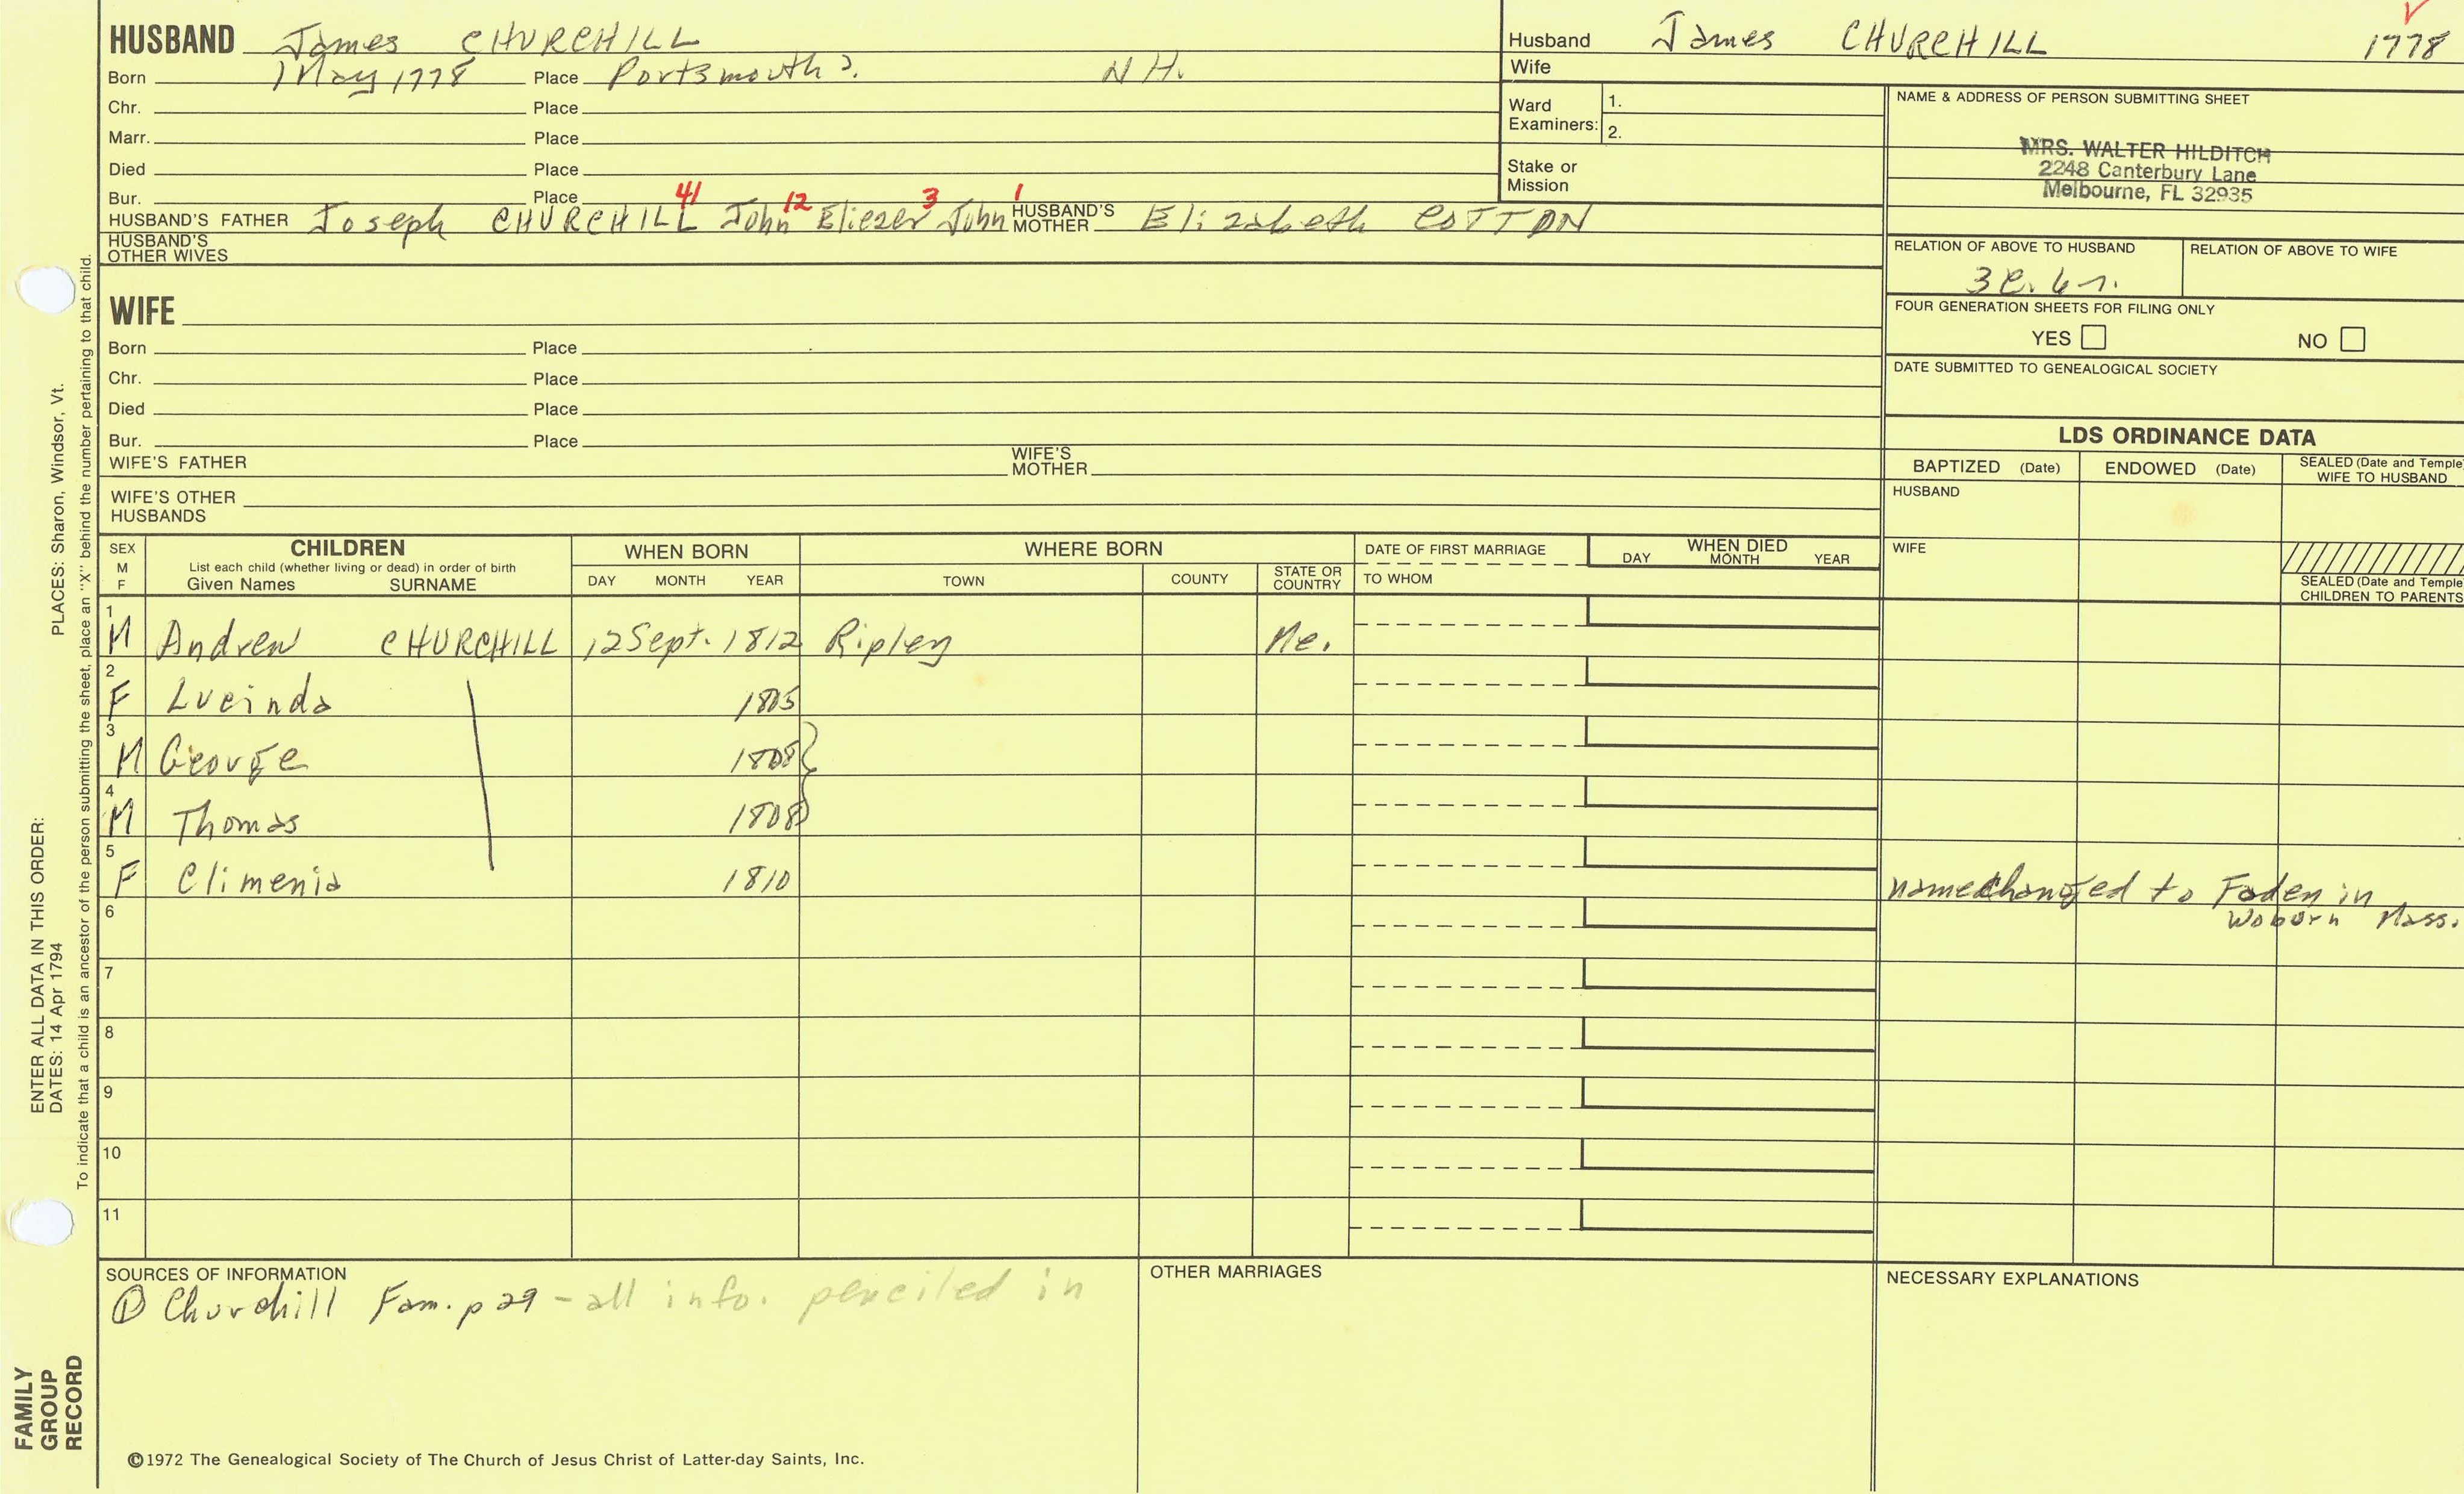 HUSBAND James CHURCHILL
Born 1 May 1778 Place Portsmouth?. NH.
Chr. Place
Marr. Place
Died Place
Bur. Place
HUSBAND'S FATHER Joseph CHURCHILL 41 John 12 Eliezer 3 John 1 HUSBAND'S MOTHER Elizabeth COTTON
HUSBAND'S OTHER WIVES
Husband James CHURCHILL 1778
Wife
Ward Examiners: 1.
2.
Stake or Mission
NAME & ADDRESS OF PERSON SUBMITTING SHEET
MRS. WALTER HILDITCH
2248 Canterbury Lane
Melbourne, FL 32935
RELATION OF ABOVE TO HUSBAND RELATION OF ABOVE TO WIFE
FOUR GENERATION SHEETS FOR FILING ONLY
YES NO
DATE SUBMITTED TO GENEALOGICAL SOCIETY
WIFE
Born Place
Chr. Place
Died Place
Bur. Place
WIFE'S FATHER WIFE'S MOTHER
WIFE'S OTHER HUSBANDS
LDS ORDINANCE DATA
BAPTIZED (Date) ENDOWED (Date) SEALED (Date and Temple) WIFE TO HUSBAND
HUSBAND
WIFE
SEALED (Date and Temple) CHILDREN TO PARENTS
SEX M F
CHILDREN
List each child (whether living or dead) in order of birth
Given Names SURNAME
WHEN BORN
DAY MONTH YEAR
WHERE BORN
TOWN COUNTY STATE OR COUNTRY
DATE OF FIRST MARRIAGE
TO WHOM
WHEN DIED
DAY MONTH YEAR
1 M Andrew CHURCHILL 12 Sept. 1812 Ripley Me.
2 F Lucinda 1805
3 M George 1808
4 M Thomas 1808
5 F Climenia 1810
name changed to Foden in
Woburn Mass.
6
7
8
9
10
11
SOURCES OF INFORMATION
① Churchill Fam. p 29 - all info. penciled in
OTHER MARRIAGES
NECESSARY EXPLANATIONS
©1972 The Genealogical Society of The Church of Jesus Christ of Latter-day Saints, Inc.
FAMILY GROUP RECORD
ENTER ALL DATA IN THIS ORDER:
DATES: 14 Apr 1794
PLACES: Sharon, Windsor, Vt.
To indicate that a child is an ancestor of the person submitting the sheet, place an "X" behind the number pertaining to that child.